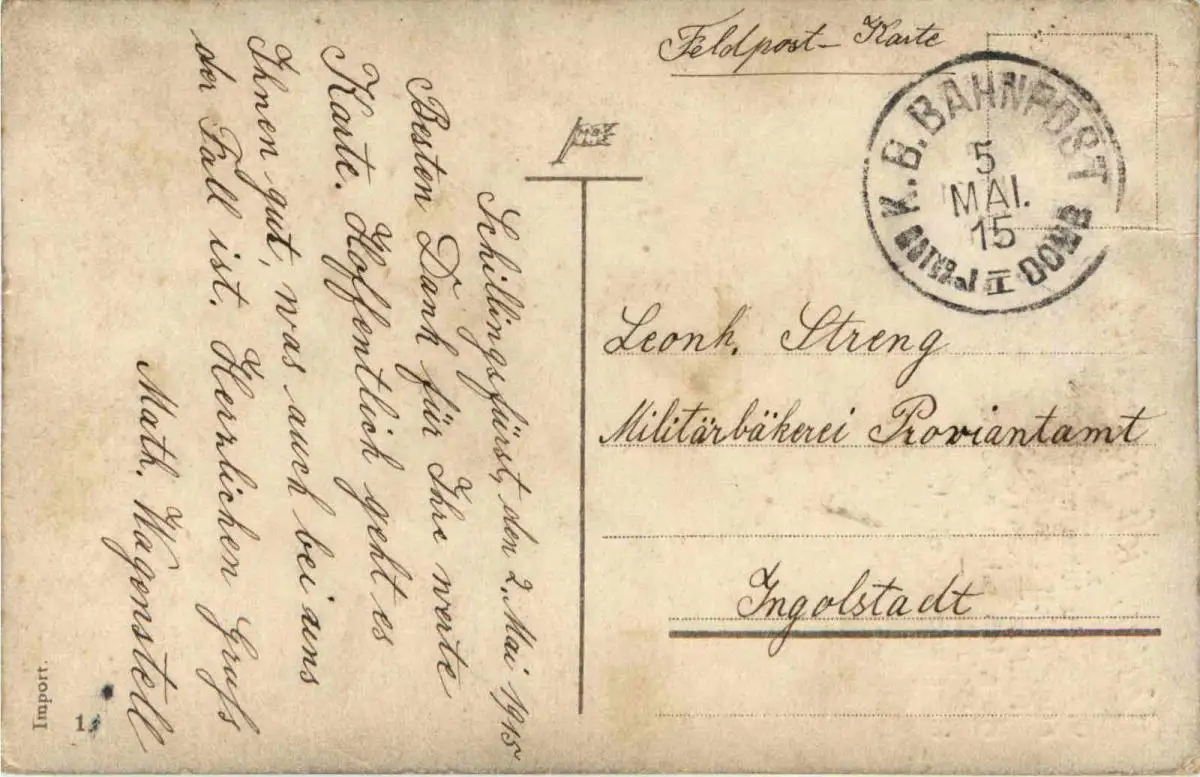 Feldpost-Karte
K.B. BAHNPOST
5
MAI.
15
II
Leonh. Streng
Militärbäkerei Proviantamt
Ingolstadt
Schillingsfürst, den 2. Mai 1915
Besten Dank für Ihre werte
Karte. Hoffentlich geht es
Ihnen gut, was auch bei uns
der Fall ist. Herzlichen Gruß
Math. Wagenstell
Import.